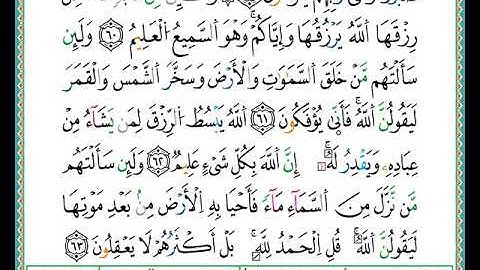 رِزْقَهَا ٱللَّهُ يَرْزُقُهَا وَإِيَّاكُمْ ۚ وَهُوَ ٱلسَّمِيعُ ٱلْعَلِيمُ ٦٠ وَلَئِن
سَأَلْتَهُم مَّنْ خَلَقَ ٱلسَّمَٰوَٰتِ وَٱلْأَرْضَ وَسَخَّرَ ٱلشَّمْسَ وَٱلْقَمَرَ
لَيَقُولُنَّ ٱللَّهُ ۖ فَأَنَّىٰ يُؤْفَكُونَ ٦١ ٱللَّهُ يَبْسُطُ ٱلرِّزْقَ لِمَن يَشَآءُ مِنْ
عِبَادِهِۦ وَيَقْدِرُ لَهُۥٓ ۚ إِنَّ ٱللَّهَ بِكُلِّ شَىْءٍ عَلِيمٌ ٦٢ وَلَئِن سَأَلْتَهُم
مَّن نَّزَّلَ مِنَ ٱلسَّمَآءِ مَآءً فَأَحْيَا بِهِ ٱلْأَرْضَ مِنۢ بَعْدِ مَوْتِهَا
لَيَقُولُنَّ ٱللَّهُ ۚ قُلِ ٱلْحَمْدُ لِلَّهِ ۚ بَلْ أَكْثَرُهُمْ لَا يَعْقِلُونَ ٦٣